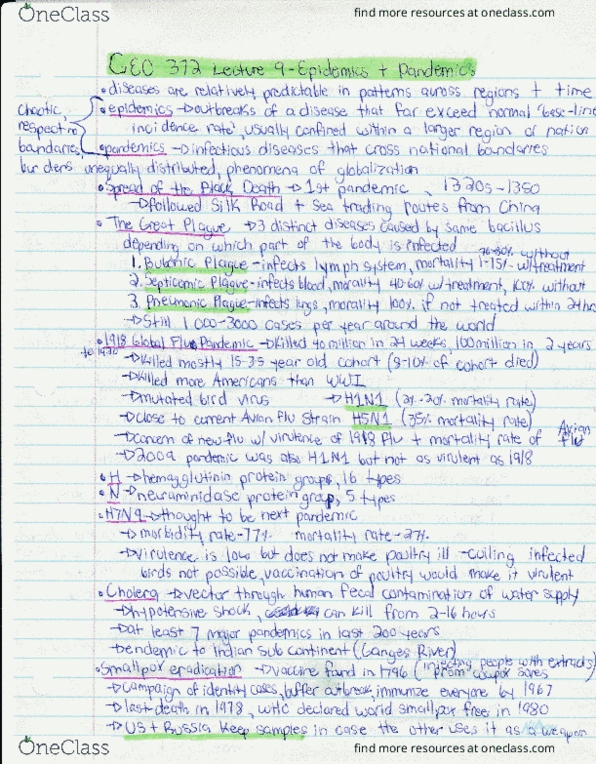 OneClass
find more resources at oneclass.com
GEO 372 Lecture 9 - Epidemics + Pandemics
• diseases are relatively predictable in patterns across regions + time
• epidemics → outbreaks of a disease that far exceed normal 'base-line
incidence rate', usually confined within a larger region or nation
• pandemics → infectious diseases that cross national boundaries
chaotic,
respect no
boundaries,
burdens unequally distributed, phenomena of globalization
• Spread of the Black Death → 1st pandemic, 1320s-1350
→ followed Silk Road + Sea trading routes from China
• The Great Plague → 3 distinct diseases caused by same bacillus
depending on which part of the body is infected
1. Bubonic Plague - infects lymph system, mortality 1-15% w/treatment
without
2. Septicemic Plague - infects blood, morality 40-60% w/ treatment, 100% without
3. Pneumonic Plague - infects lungs, morality 100% if not treated within 24hrs
→ Still 1 000-3000 cases per year around the world
• 1918 Global Flu Pandemic → killed 40 million in 24 weeks, 100 million in 2 years
to 1920
→ killed mostly 15-35 year old cohort (8-10% of cohort died)
→ killed more Americans than WWI
→ mutated bird virus → H1N1 (2%-20% mortality rate)
→ close to current Avian flu strain H5N1 (35% mortality rate)
→ concern of new flu w/ virulence of 1918 flu + mortality rate of Avian flu
→ 2009 pandemic was also H1N1 but not as virulent as 1918
• H → hemagglutinin protein group, 16 types
• N → neuraminidase protein group, 5 types
• H7N9 → thought to be next pandemic
→ morbidity rate-77% mortality rate-27%
→ virulence is low but does not make poultry ill - culling infected
birds not possible, vaccination of poultry would make it virulent
• Cholera → vector through human fecal contamination of water supply
→ hypotensive shock, can kill from 2-16 hours
→ at least 7 major pandemics in last 200 years
→ endemic to Indian Sub continent (Ganges River)
• Smallpox eradication → vaccine found in 1796 (injecting people with extracts
from cowpox sores
→ campaign of identity cases, buffer outbreak, immunize everyone by 1967
→ last death in 1978, WHO declared world smallpox free in 1980
→ US + Russia keep samples in case the other uses it as a weapon
OneClass
find more resources at oneclass.com